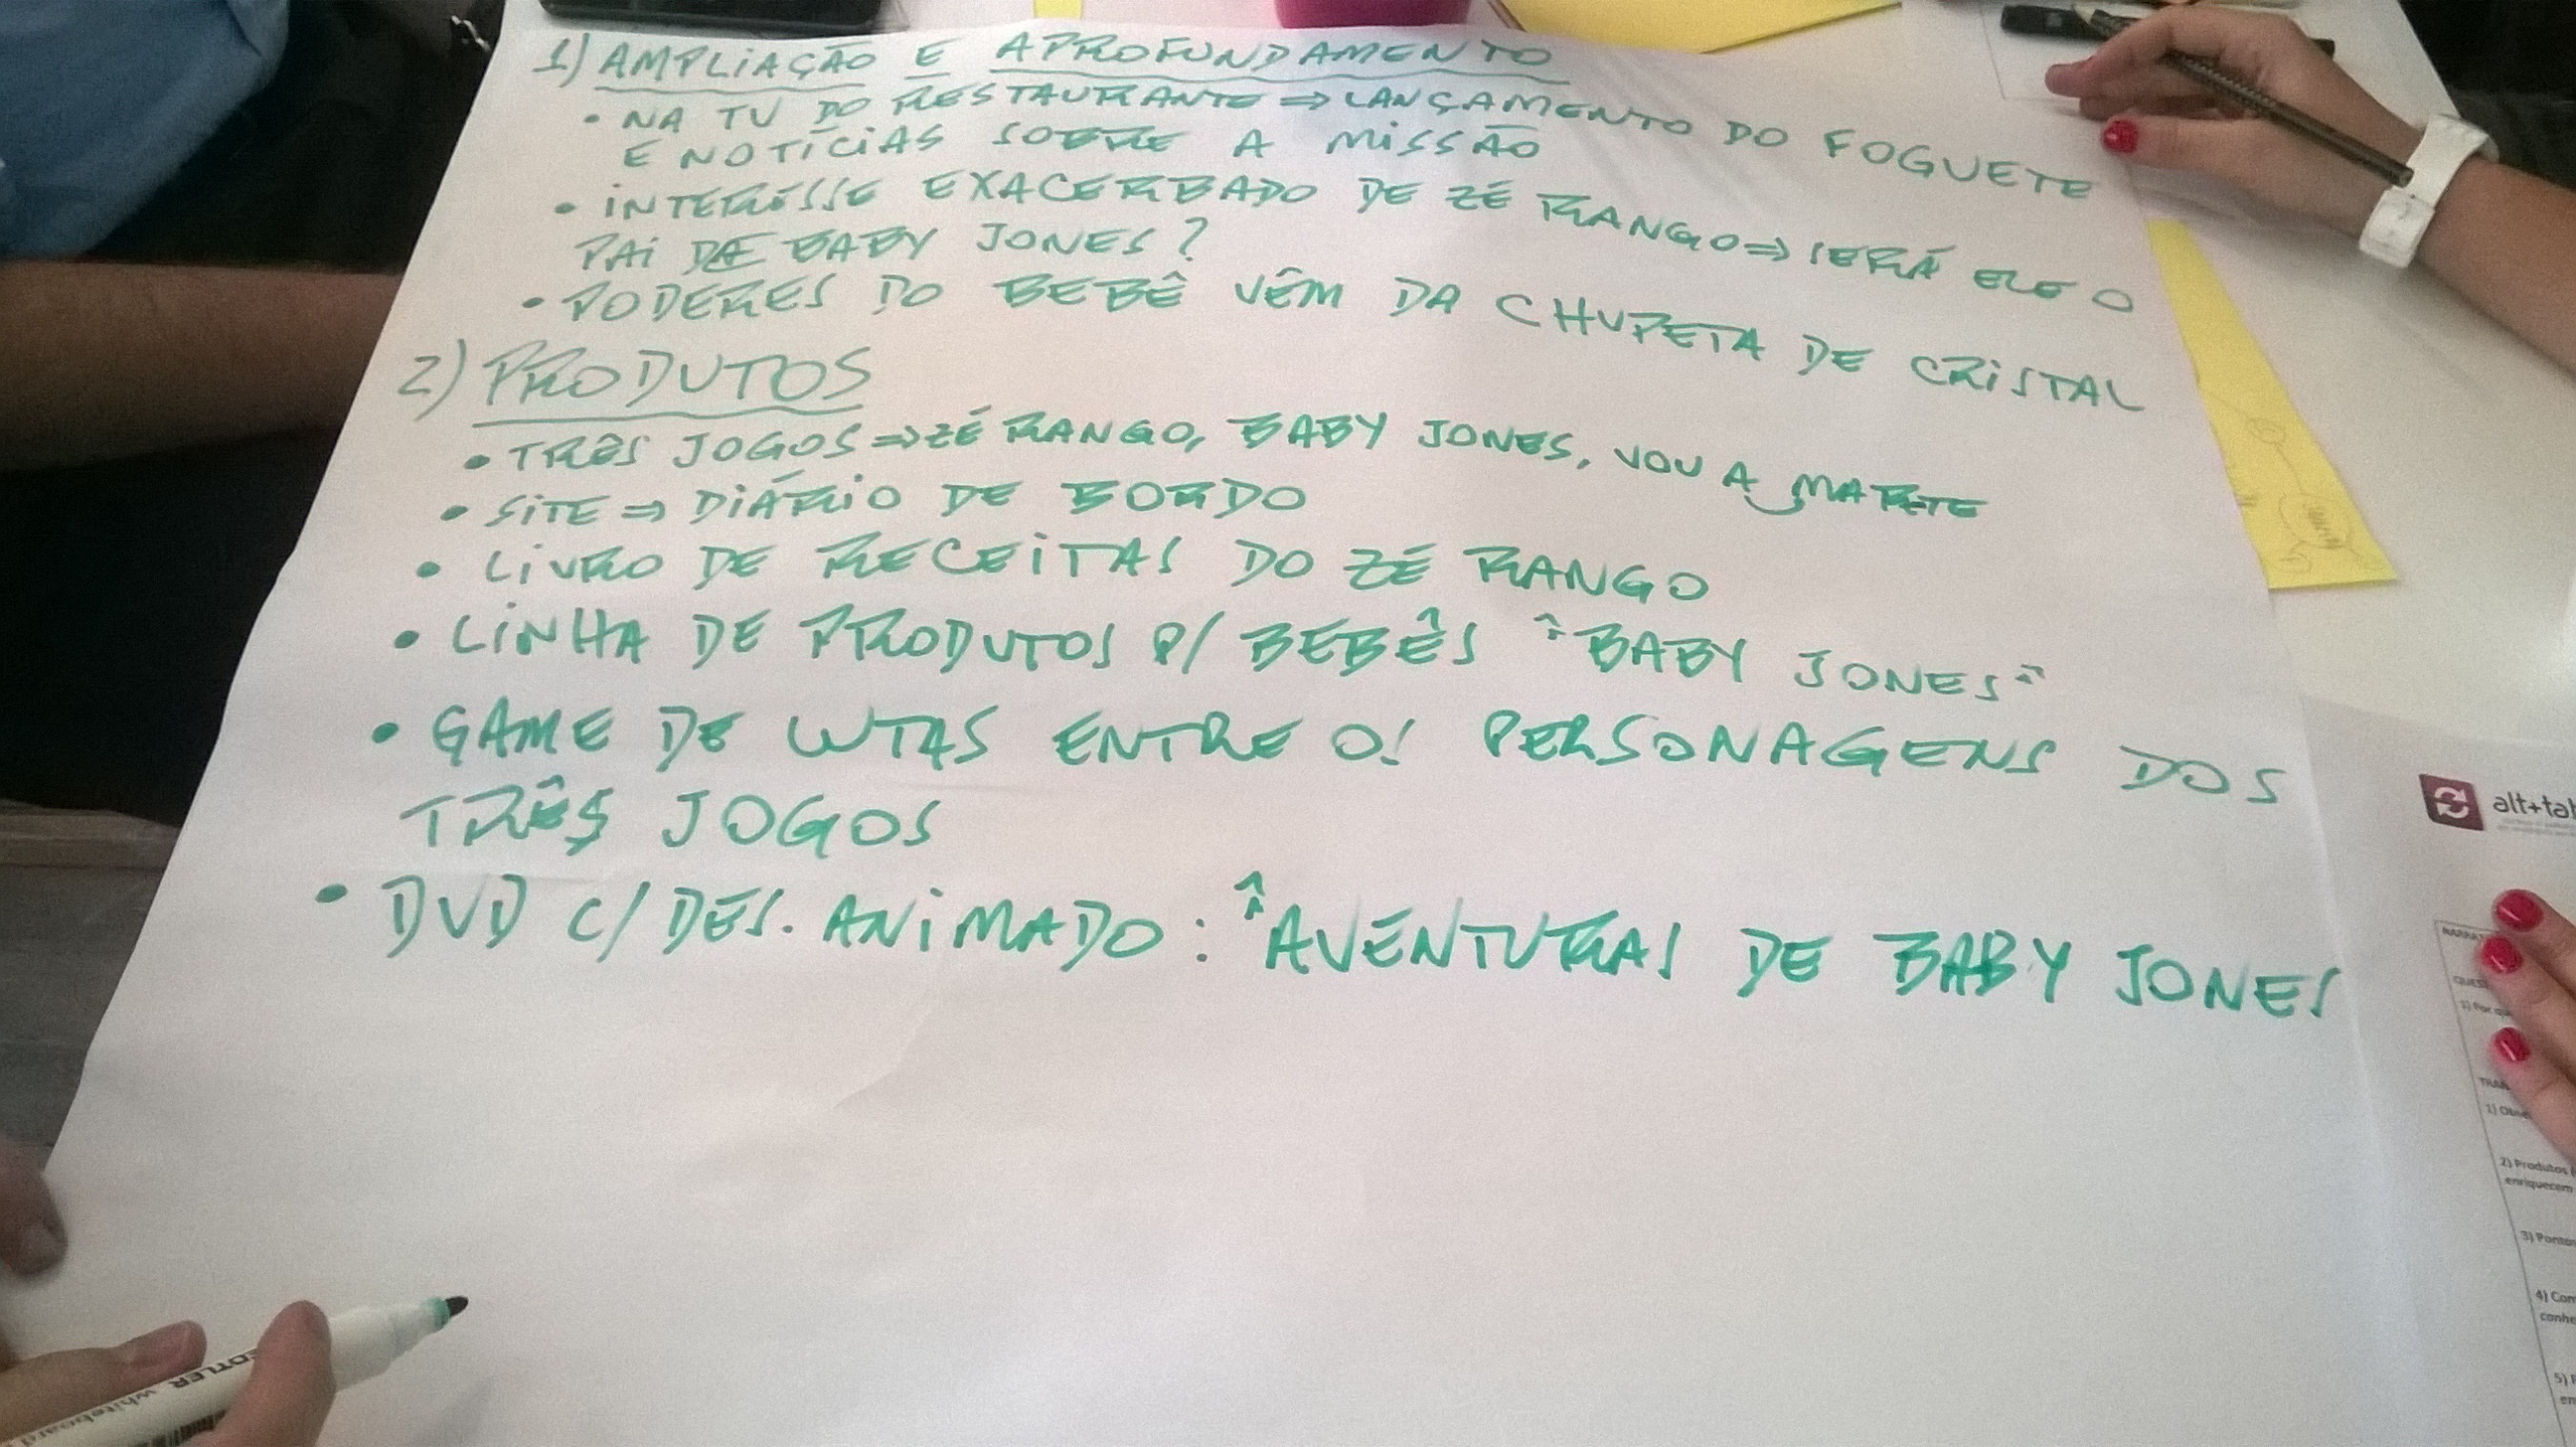 1) AMPLIAÇÃO E APROFUNDAMENTO
• NA TV DO RESTAURANTE ⇒ LANÇAMENTO DO FOGUETE
E NOTÍCIAS SOBRE A MISSÃO
• INTERESSE EXACERBADO DE ZÉ RANGO ⇒ SERÁ ELE O
PAI DE BABY JONES?
• PODERES DO BEBÊ VÊM DA CHUPETA DE CRISTAL
2) PRODUTOS
• TRÊS JOGOS ⇒ ZÉ RANGO, BABY JONES, VOU A MARTE
• SITE ⇒ DIÁRIO DE BORDO
• LIVRO DE RECEITAS DO ZÉ RANGO
• LINHA DE PRODUTOS P/ BEBÊS "BABY JONES"
• GAME DE LUTAS ENTRE OS PERSONAGENS DOS
TRÊS JOGOS
• DVD C/ DES. ANIMADO: "AVENTURAS DE BABY JONES
alt+tab
1) Por
2) Produtos
enriquecem
3) Pontos
4) Com
conhe
5)
whiteboard